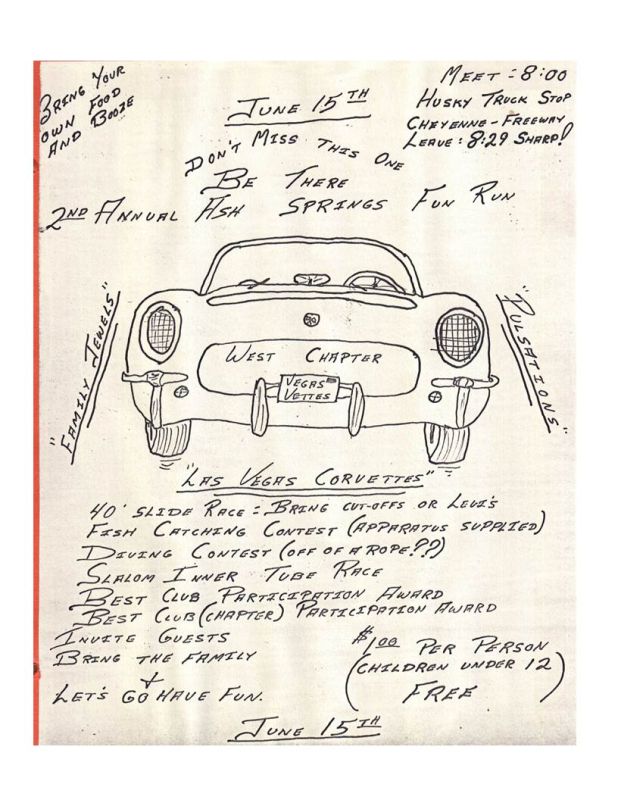 BRING YOUR
OWN FOOD
AND BOOZE
MEET - 8:00
HUSKY TRUCK STOP
CHEYENNE - FREEWAY
LEAVE : 8:29 SHARP!
JUNE 15TH
DON'T MISS THIS ONE
BE THERE
2ND ANNUAL ASH SPRINGS FUN RUN
"FAMILY JEWELS"
"PULSATIONS"
WEST CHAPTER
VEGAS
VETTES
"LAS VEGAS CORVETTES"
40' SLIDE RACE = BRING CUT-OFFS OR LEVI'S
FISH CATCHING CONTEST (APPARATUS SUPPLIED)
DIVING CONTEST (OFF OF A ROPE??)
SLALOM INNER TUBE RACE
BEST CLUB PARTICIPATION AWARD
BEST CLUB (CHAPTER) PARTICIPATION AWARD
INVITE GUESTS
BRING THE FAMILY
+
LET'S GO HAVE FUN.
$1.00 PER PERSON
(CHILDREN UNDER 12)
FREE
JUNE 15TH